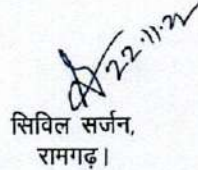 22.11.22
सिविल सर्जन,
रामगढ़।